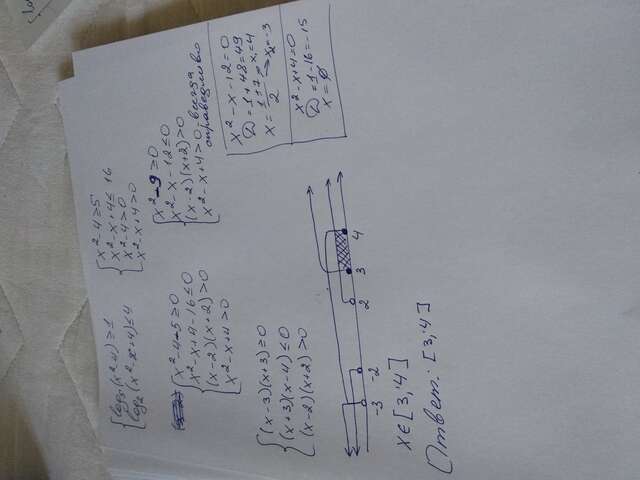 log₅(x²-4)≥1
log₂(x²-x+4)≤4
x²-4≥5
x²-x+4≤16
x²-4>0
x²-x+4>0
x²-4-5≥0
x²-x+4-16≤0
(x-2)(x+2)>0
x²-x+4>0
x²-9≥0
x²-x-12≤0
(x-2)(x+2)>0
x²-x+4>0-всегда
справедливо
x²-x-12=0
D=1+48=49
x=1±7/2 x₁=4
x₂=-3
x²-x+4=0
D=1-16=-15
x=∅
(x-3)(x+3)≥0
(x+3)(x-4)≤0
(x-2)(x+2)>0
-3 -2 2 3 4
x∈[3;4]
Ответ: [3;4]